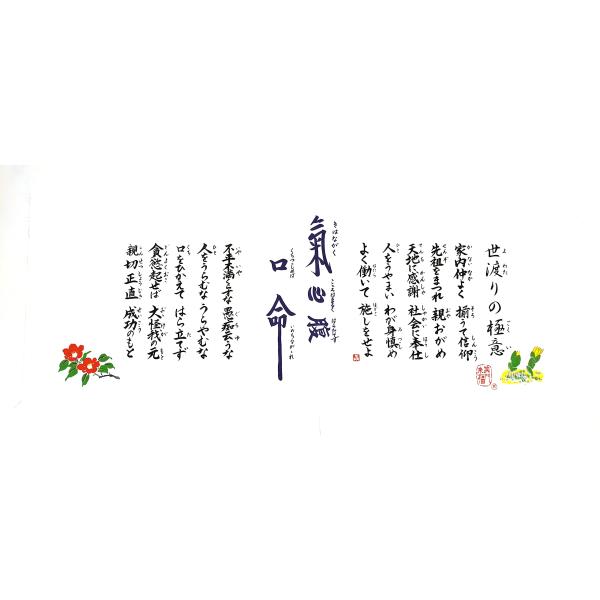 世渡りの極意
家内仲よく 揃うて信仰
先祖をまつれ 親おがめ
天地に感謝 社会に奉仕
人をうやまい わが身慎め
よく働いて 施しをせよ
氣心腹
口命
不平不満云うな 愚痴云うな
人をうらむな うらやむな
口をひかえて はら立てず
貪慾起せば 大怪我の元
親切正直 成功のもと